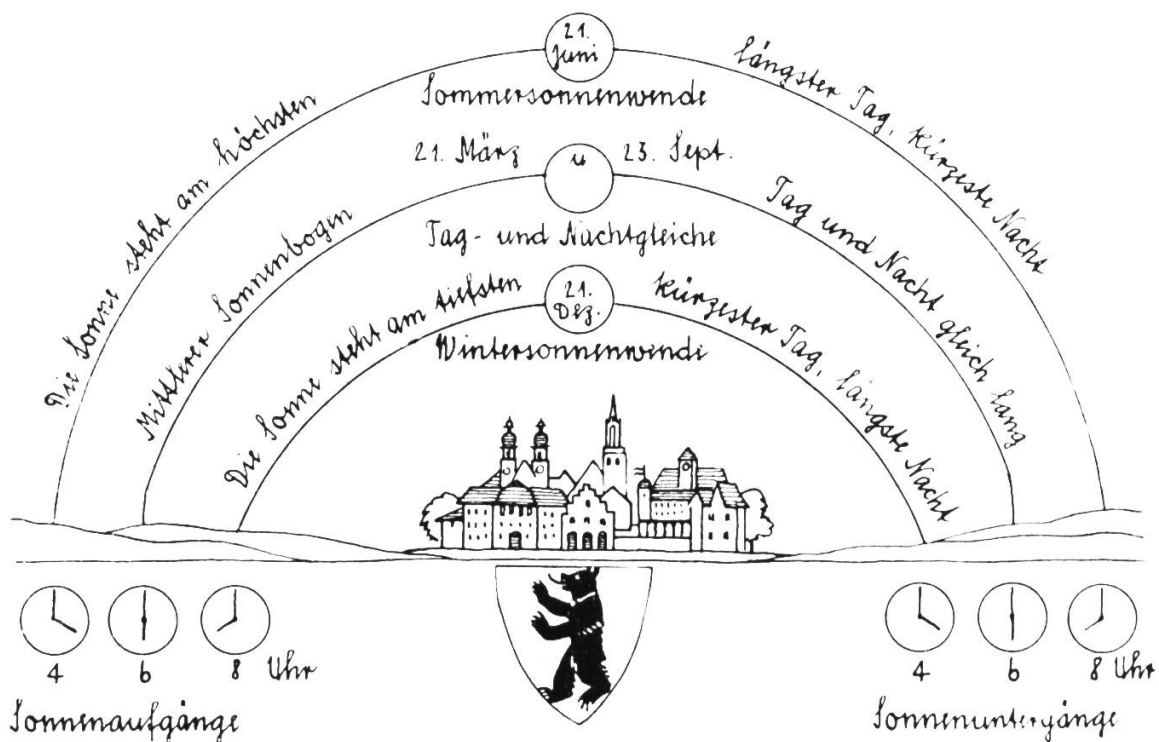 21.
Juni
Sommersonnenwende
Die Sonne steht am höchsten
längster Tag, kürzeste Nacht
21. März u 23. Sept.
Tag- und Nachtgleiche
Mittlerer Sonnenbogen
Tag und Nacht gleich lang
21.
Dez.
Wintersonnenwende
Die Sonne steht am tiefsten
kürzester Tag, längste Nacht
4 6 8 Uhr
Sonnenaufgänge
4 6 8 Uhr
Sonnenuntergänge